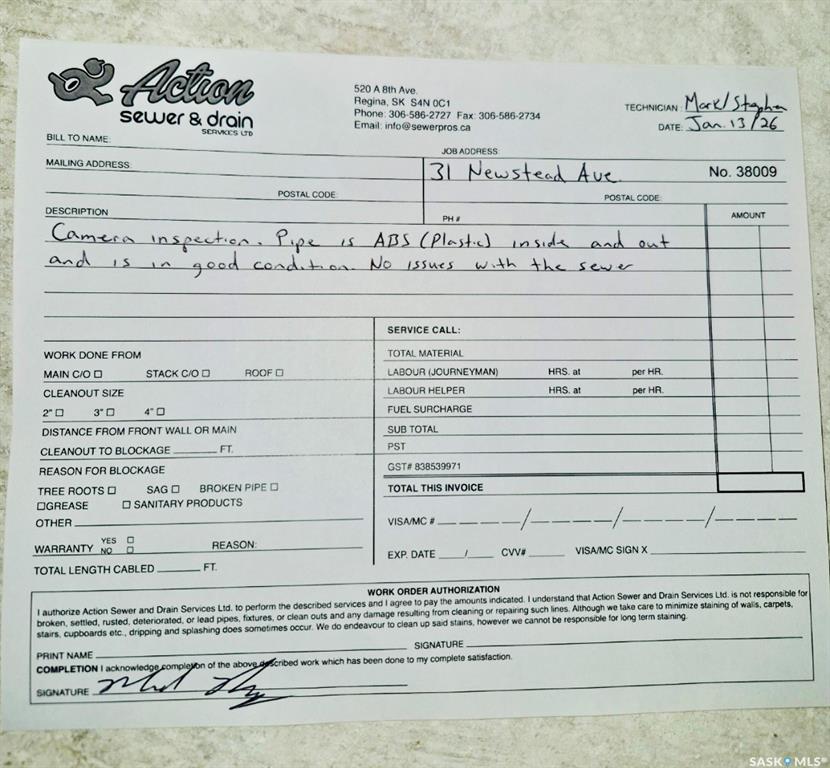 Action
sewer & drain
SERVICES LTD
520 A 8th Ave.
Regina, SK S4N 0C1
Phone: 306-586-2727 Fax: 306-586-2734
Email: info@sewerpros.ca
TECHNICIAN: Mark/Stephen
DATE: Jan. 13/26
BILL TO NAME:
JOB ADDRESS:
MAILING ADDRESS:
31 Newstead Ave.
No. 38009
POSTAL CODE:
POSTAL CODE:
DESCRIPTION
PH #
AMOUNT
Camera inspection. Pipe is ABS (Plastic) inside and out
and is in good condition. No issues with the sewer
SERVICE CALL:
WORK DONE FROM
TOTAL MATERIAL
MAIN C/O ☐ STACK C/O ☐ ROOF ☐
LABOUR (JOURNEYMAN) HRS. at per HR.
CLEANOUT SIZE
LABOUR HELPER HRS. at per HR.
2" ☐ 3" ☐ 4" ☐
FUEL SURCHARGE
DISTANCE FROM FRONT WALL OR MAIN
SUB TOTAL
CLEANOUT TO BLOCKAGE ______ FT.
PST
REASON FOR BLOCKAGE
GST# 838539971
TREE ROOTS ☐ SAG ☐ BROKEN PIPE ☐
TOTAL THIS INVOICE
☐ GREASE ☐ SANITARY PRODUCTS
OTHER
VISA/MC # ____/____/____/____
WARRANTY YES ☐
NO ☐ REASON:
EXP. DATE ___/___ CVV# ______ VISA/MC SIGN X
TOTAL LENGTH CABLED ______ FT.
WORK ORDER AUTHORIZATION
I authorize Action Sewer and Drain Services Ltd. to perform the described services and I agree to pay the amounts indicated. I understand that Action Sewer and Drain Services Ltd. is not responsible for
broken, settled, rusted, deteriorated, or lead pipes, fixtures, or clean outs and any damage resulting from cleaning or repairing such lines. Although we take care to minimize staining of walls, carpets,
stairs, cupboards etc., dripping and splashing does sometimes occur. We do endeavour to clean up said stains, however we cannot be responsible for long term staining.
PRINT NAME
SIGNATURE
COMPLETION I acknowledge completion of the above described work which has been done to my complete satisfaction.
SIGNATURE
SASK MLS®